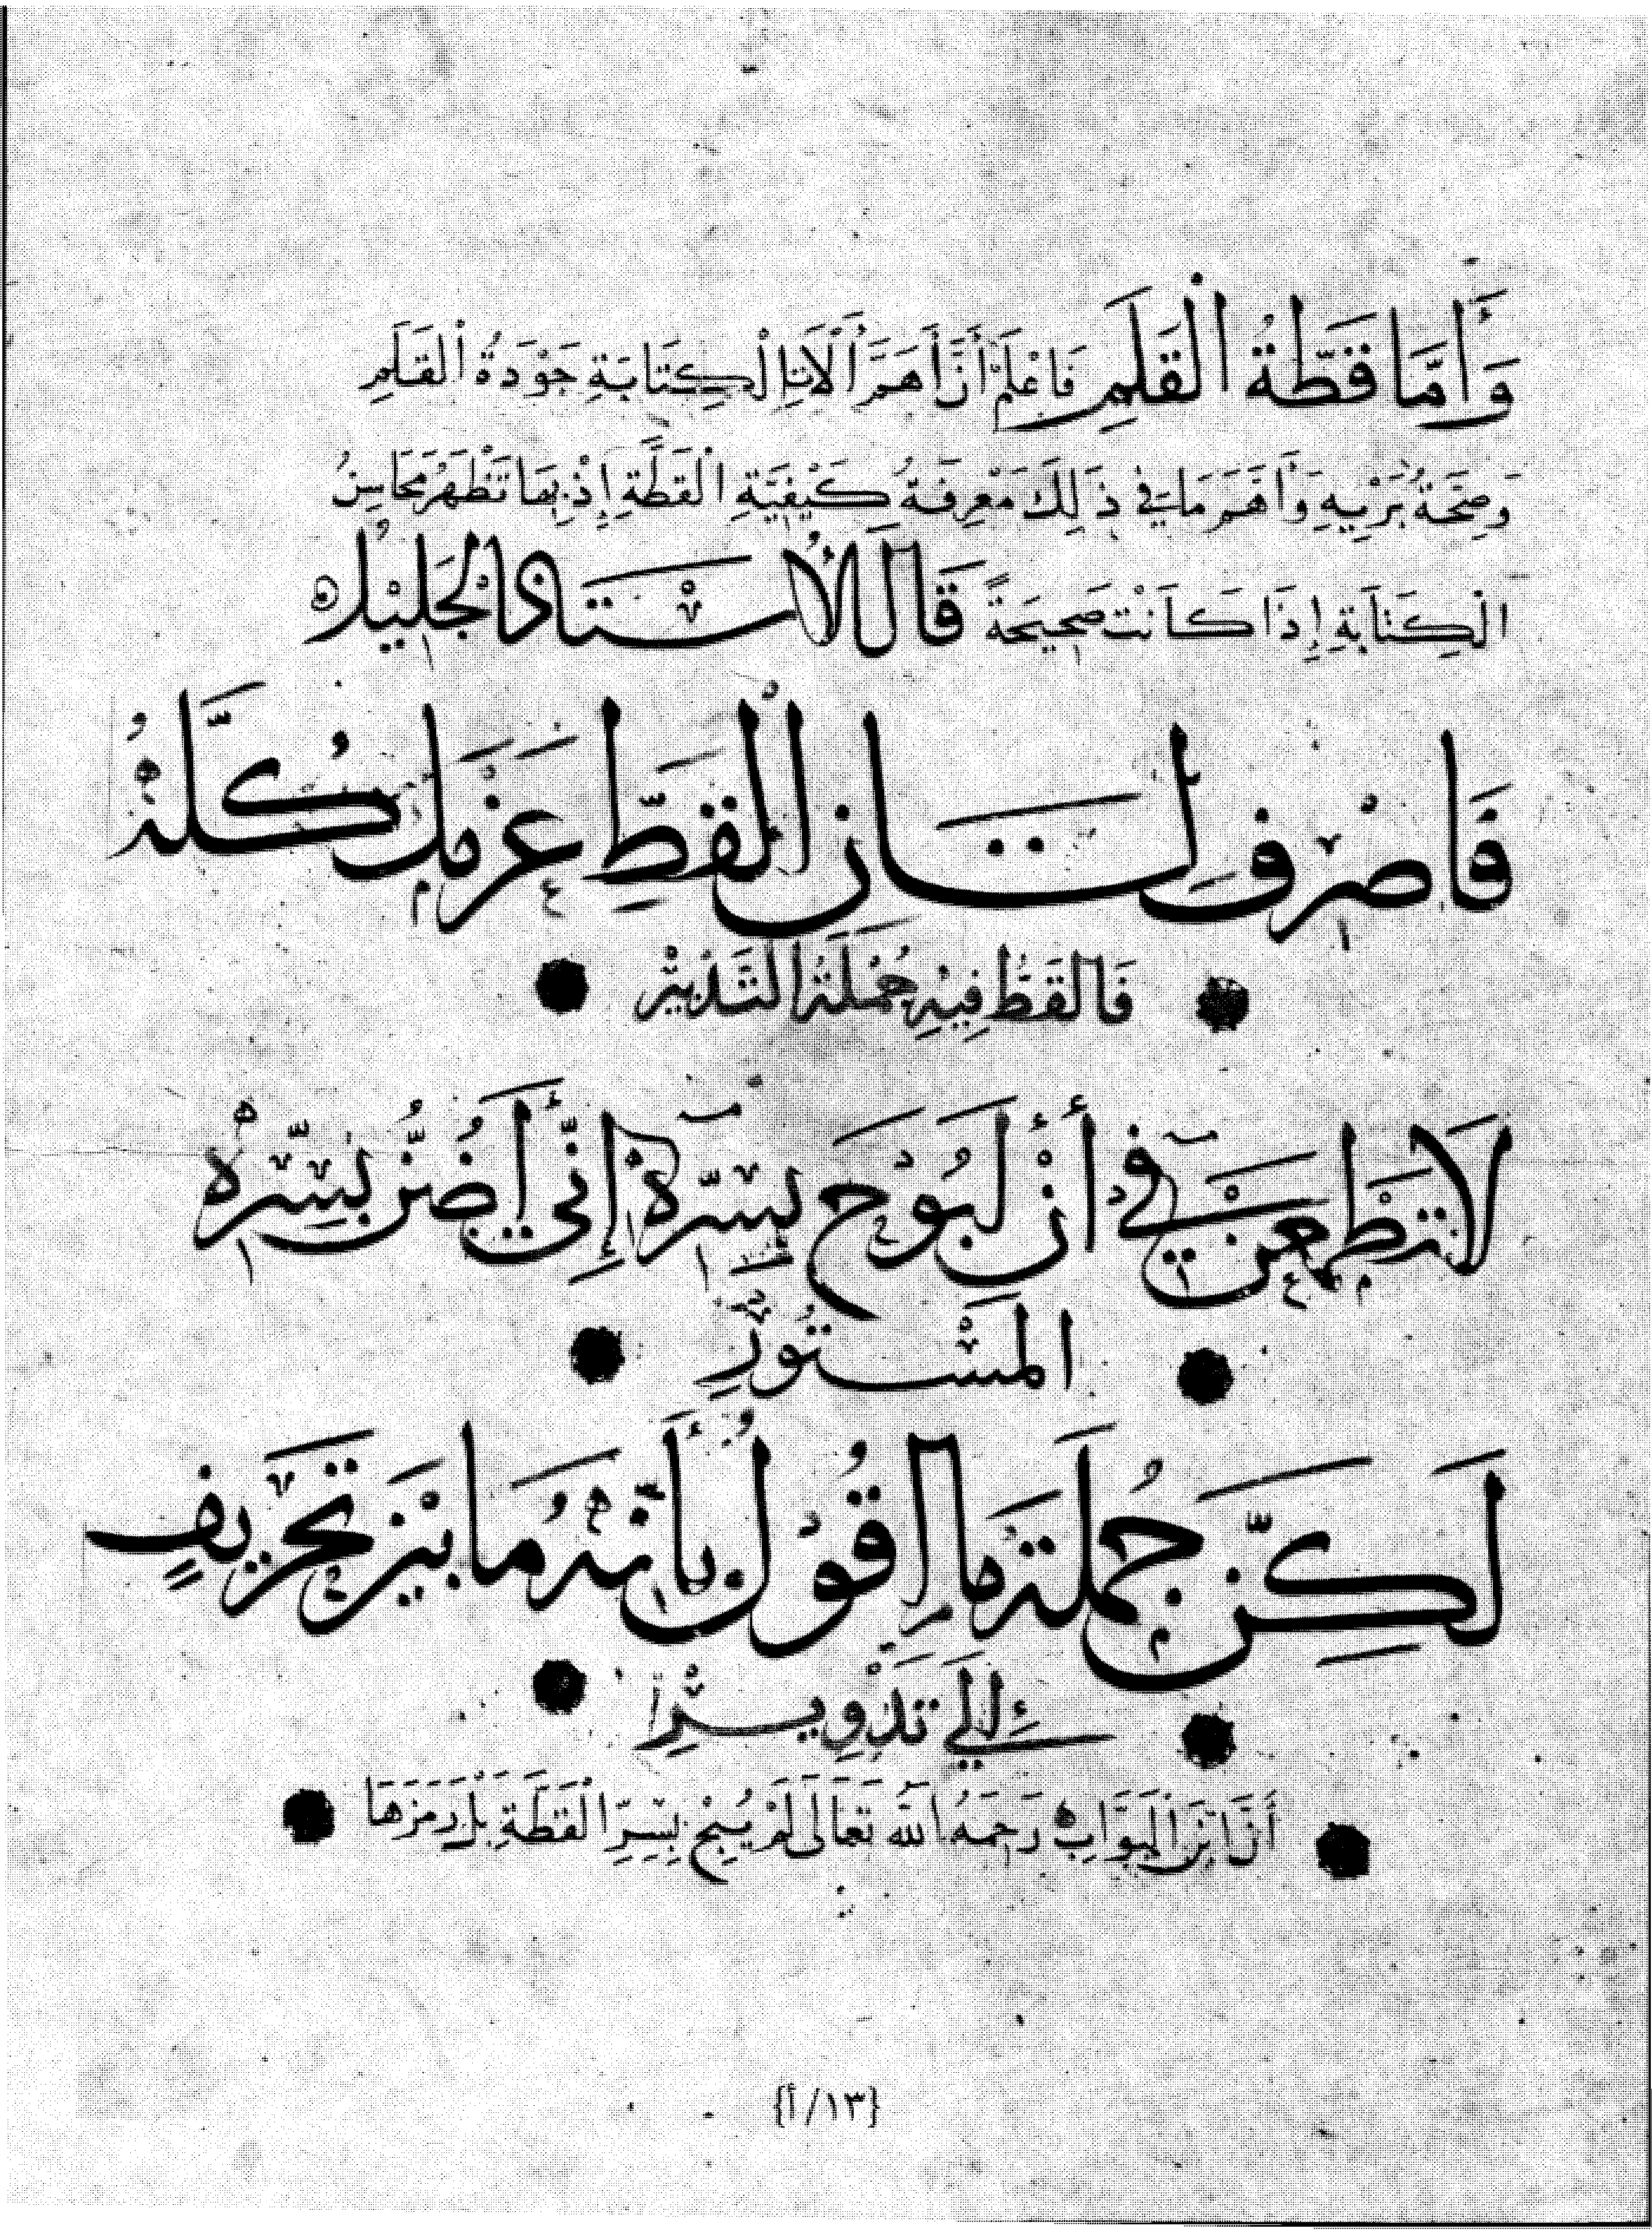 وَأَمَّا قَطَّةُ الْقَلَمِ فَاعْلَمْ أَنَّ أَهَمَّ أَلَاتِ الْكِتَابَةِ جَوْدَةُ الْقَلَمِ
وَصِحَّةُ بَرْيِهِ وَأَهَمَّ مَا فِي ذَلِكَ مَعْرِفَةُ كَيْفِيَّةِ الْقَطَّةِ إِذْ بِهَا تَظْهَرُ مَحَاسِنُ
الْكِتَابَةِ إِذَا كَانَتْ صَحِيحَةً قَالَ الْأُسْتَاذُ الْجَلِيْلُ
فَاصْرِفْ لِشَانِ الْقَطِّ عَزْمَكَ كُلَّهُ
فَالْقَطُّ فِيْهِ جُمْلَةُ التَّدْبِيْرْ
لَا تَطْمَعَنْ فِي أَنْ أَبُوْحَ بِسِرِّهِ إِنِّي أَضُنُّ بِسِرِّهِ
الْمَسْتُوْرِ
لَكِنَّ جُمْلَةَ مَا أَقُوْلُ بِأَنَّهُ مَا بَيْنَ تَحْرِيفٍ
إِلَى تَدْوِيرْ
أَنَّ ابْنَ الْبَوَّابِ رَحِمَهُ اللهُ تَعَالَى لَمْ يُبِحْ بِسِرِّ الْقَطَّةِ بَلْ رَمَزَهَا
{١٣/أ}